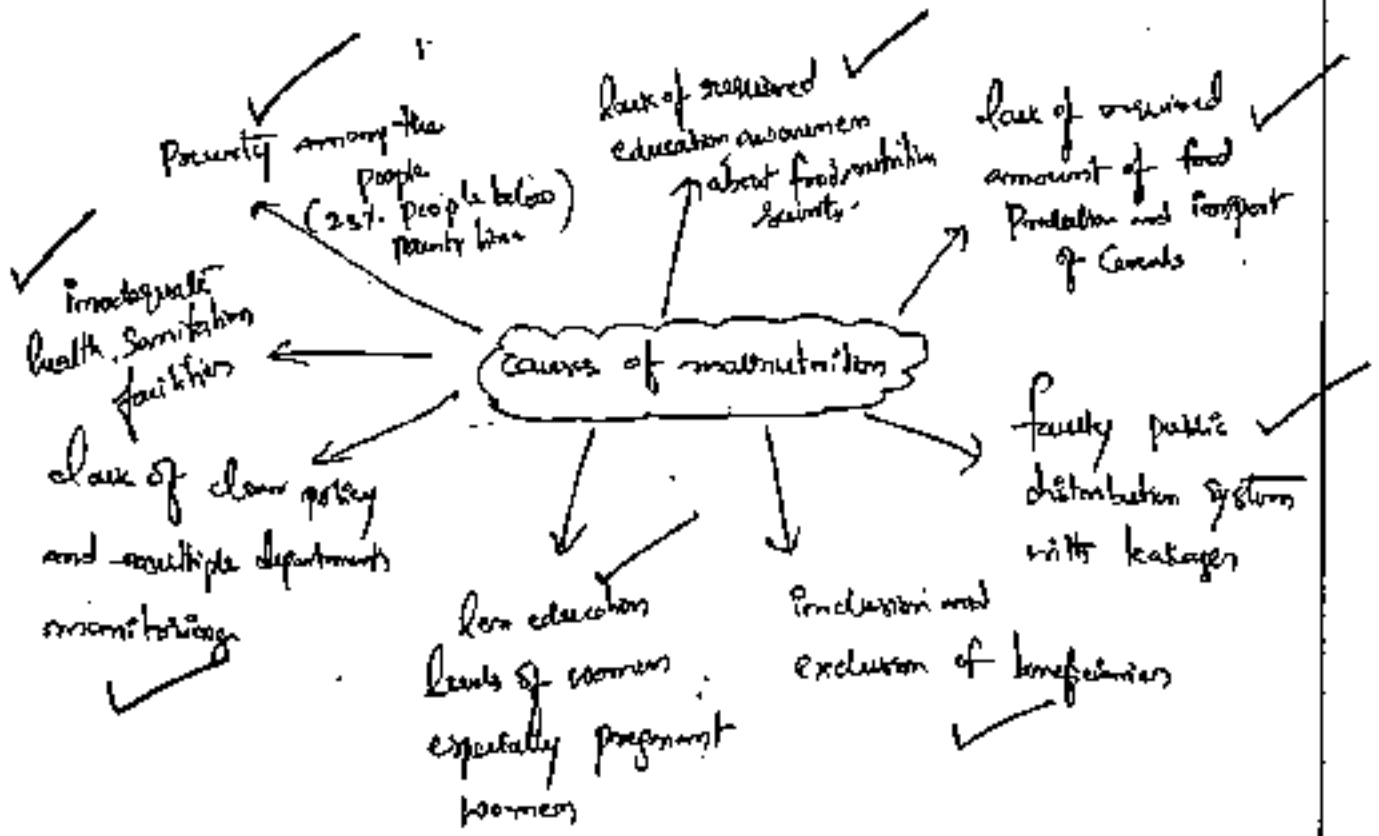 Poverty among the
people
(23%. people below
poverty line)
lack of required
education awareness
about food, nutrition
security.
lack of required
amount of food
Production and import
of Cereals
inadequate
health, Sanitation
facilities
causes of malnutrition
faulty public
distribution system
with leakages
lack of clear policy
and multiple departments
monitoring
less education
levels of women
especially pregnant
women
inclusion and
exclusion of beneficiaries